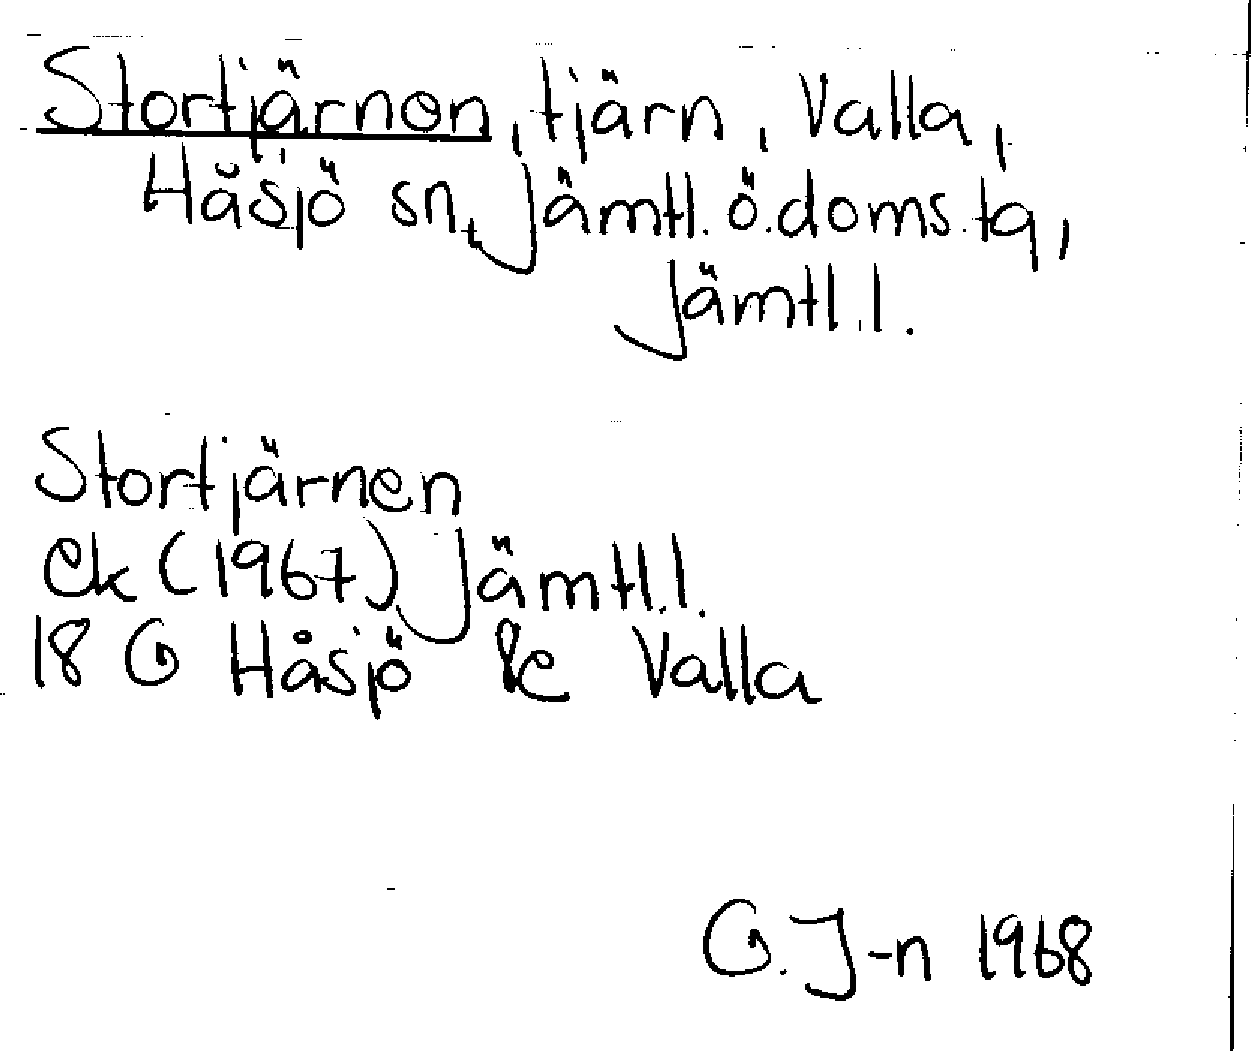 Stortjärnen, tjärn, Valla,
Håsjö sn, Jämtl. ö. doms. tg,
Jämtl. l.
Stortjärnen
Ek (1967) Jämtl. l.
18 G Håsjö 8c Valla
G. J-n 1968